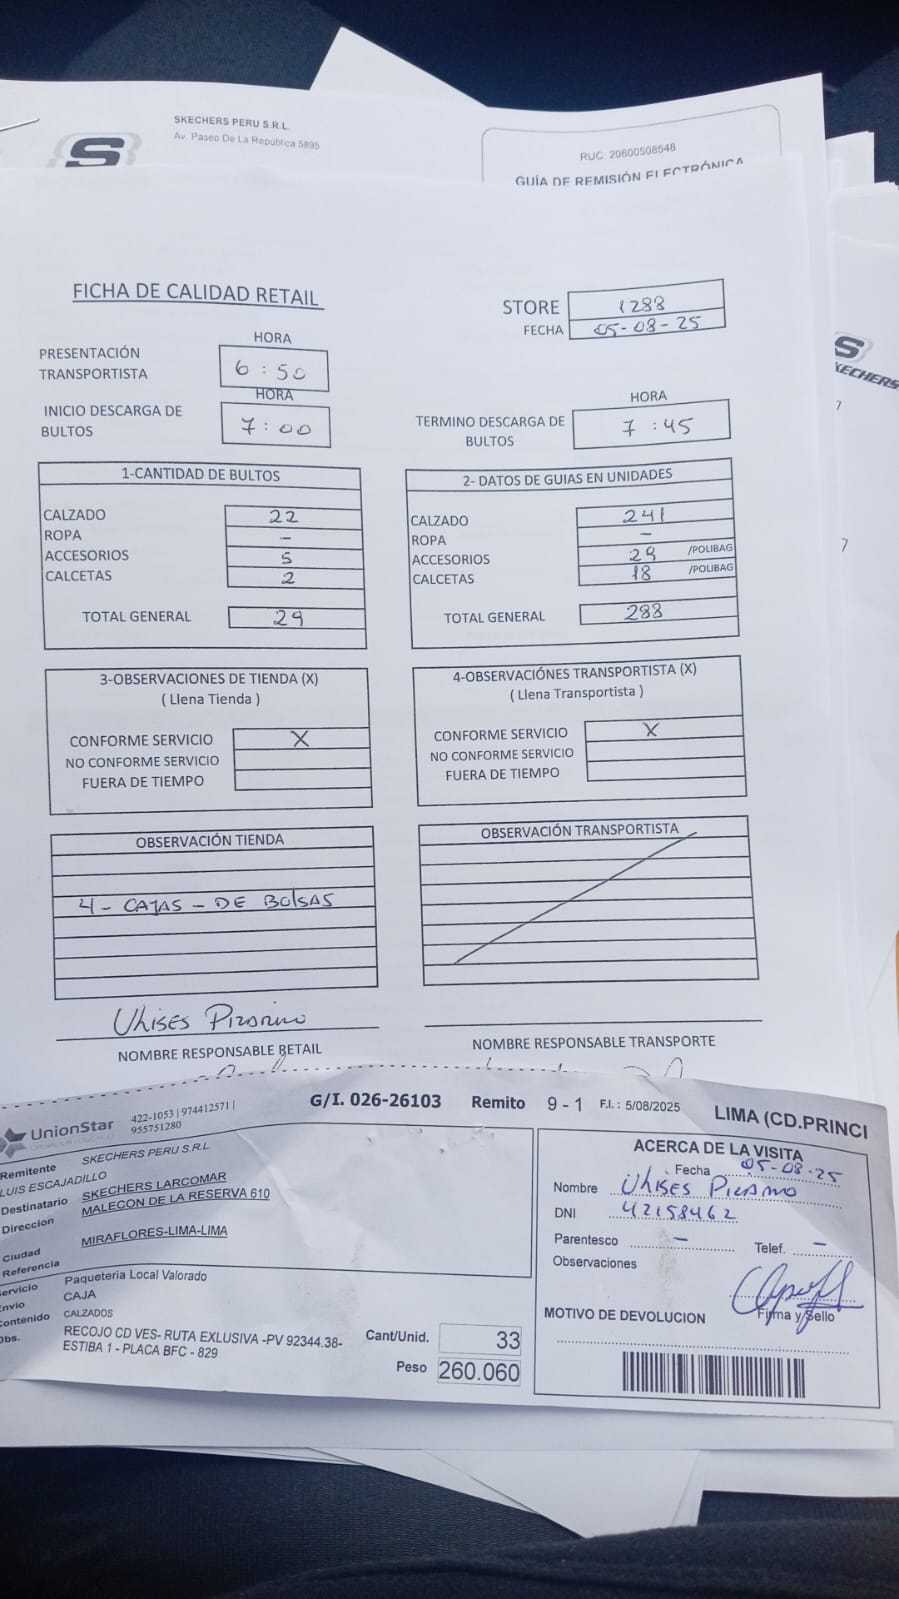 SKECHERS PERU S.R.L.
Av. Paseo De La República 5895
RUC: 20600508548
GUÍA DE REMISIÓN ELECTRÓNICA
S
SKECHERS
7
7
FICHA DE CALIDAD RETAIL
STORE 1288
FECHA 05-08-25
HORA
PRESENTACIÓN TRANSPORTISTA 6:50
HORA
INICIO DESCARGA DE BULTOS 7:00
HORA
TERMINO DESCARGA DE BULTOS 7:45
1-CANTIDAD DE BULTOS
CALZADO 22
ROPA -
ACCESORIOS 5
CALCETAS 2
TOTAL GENERAL 29
2- DATOS DE GUIAS EN UNIDADES
CALZADO 241
ROPA -
ACCESORIOS 29 /POLIBAG
CALCETAS 18 /POLIBAG
TOTAL GENERAL 288
3-OBSERVACIONES DE TIENDA (X)
( Llena Tienda )
CONFORME SERVICIO X
NO CONFORME SERVICIO
FUERA DE TIEMPO
4-OBSERVACIÓNES TRANSPORTISTA (X)
( Llena Transportista )
CONFORME SERVICIO X
NO CONFORME SERVICIO
FUERA DE TIEMPO
OBSERVACIÓN TIENDA
4 - CAJAS - DE BOLSAS
OBSERVACIÓN TRANSPORTISTA
Ulises Pizarro
NOMBRE RESPONSABLE RETAIL
NOMBRE RESPONSABLE TRANSPORTE
UnionStar
422-1053 | 974412571 |
955751280
G/I. 026-26103 Remito 9 - 1 F.I.: 5/08/2025 LIMA (CD.PRINCI
Remitente SKECHERS PERU S.R.L
LUIS ESCAJADILLO
Destinatario SKECHERS LARCOMAR
Direccion MALECON DE LA RESERVA 610
Ciudad MIRAFLORES-LIMA-LIMA
Referencia
Servicio Paqueteria Local Valorado
Envio CAJA
Contenido CALZADOS
Obs. RECOJO CD VES- RUTA EXLUSIVA -PV 92344.38-
ESTIBA 1 - PLACA BFC - 829
Cant/Unid. 33
Peso 260.060
ACERCA DE LA VISITA
Fecha 05-08-25
Nombre Ulises Pizarro
DNI 42158462
Parentesco - Telef. -
Observaciones
Firma y Sello
MOTIVO DE DEVOLUCION